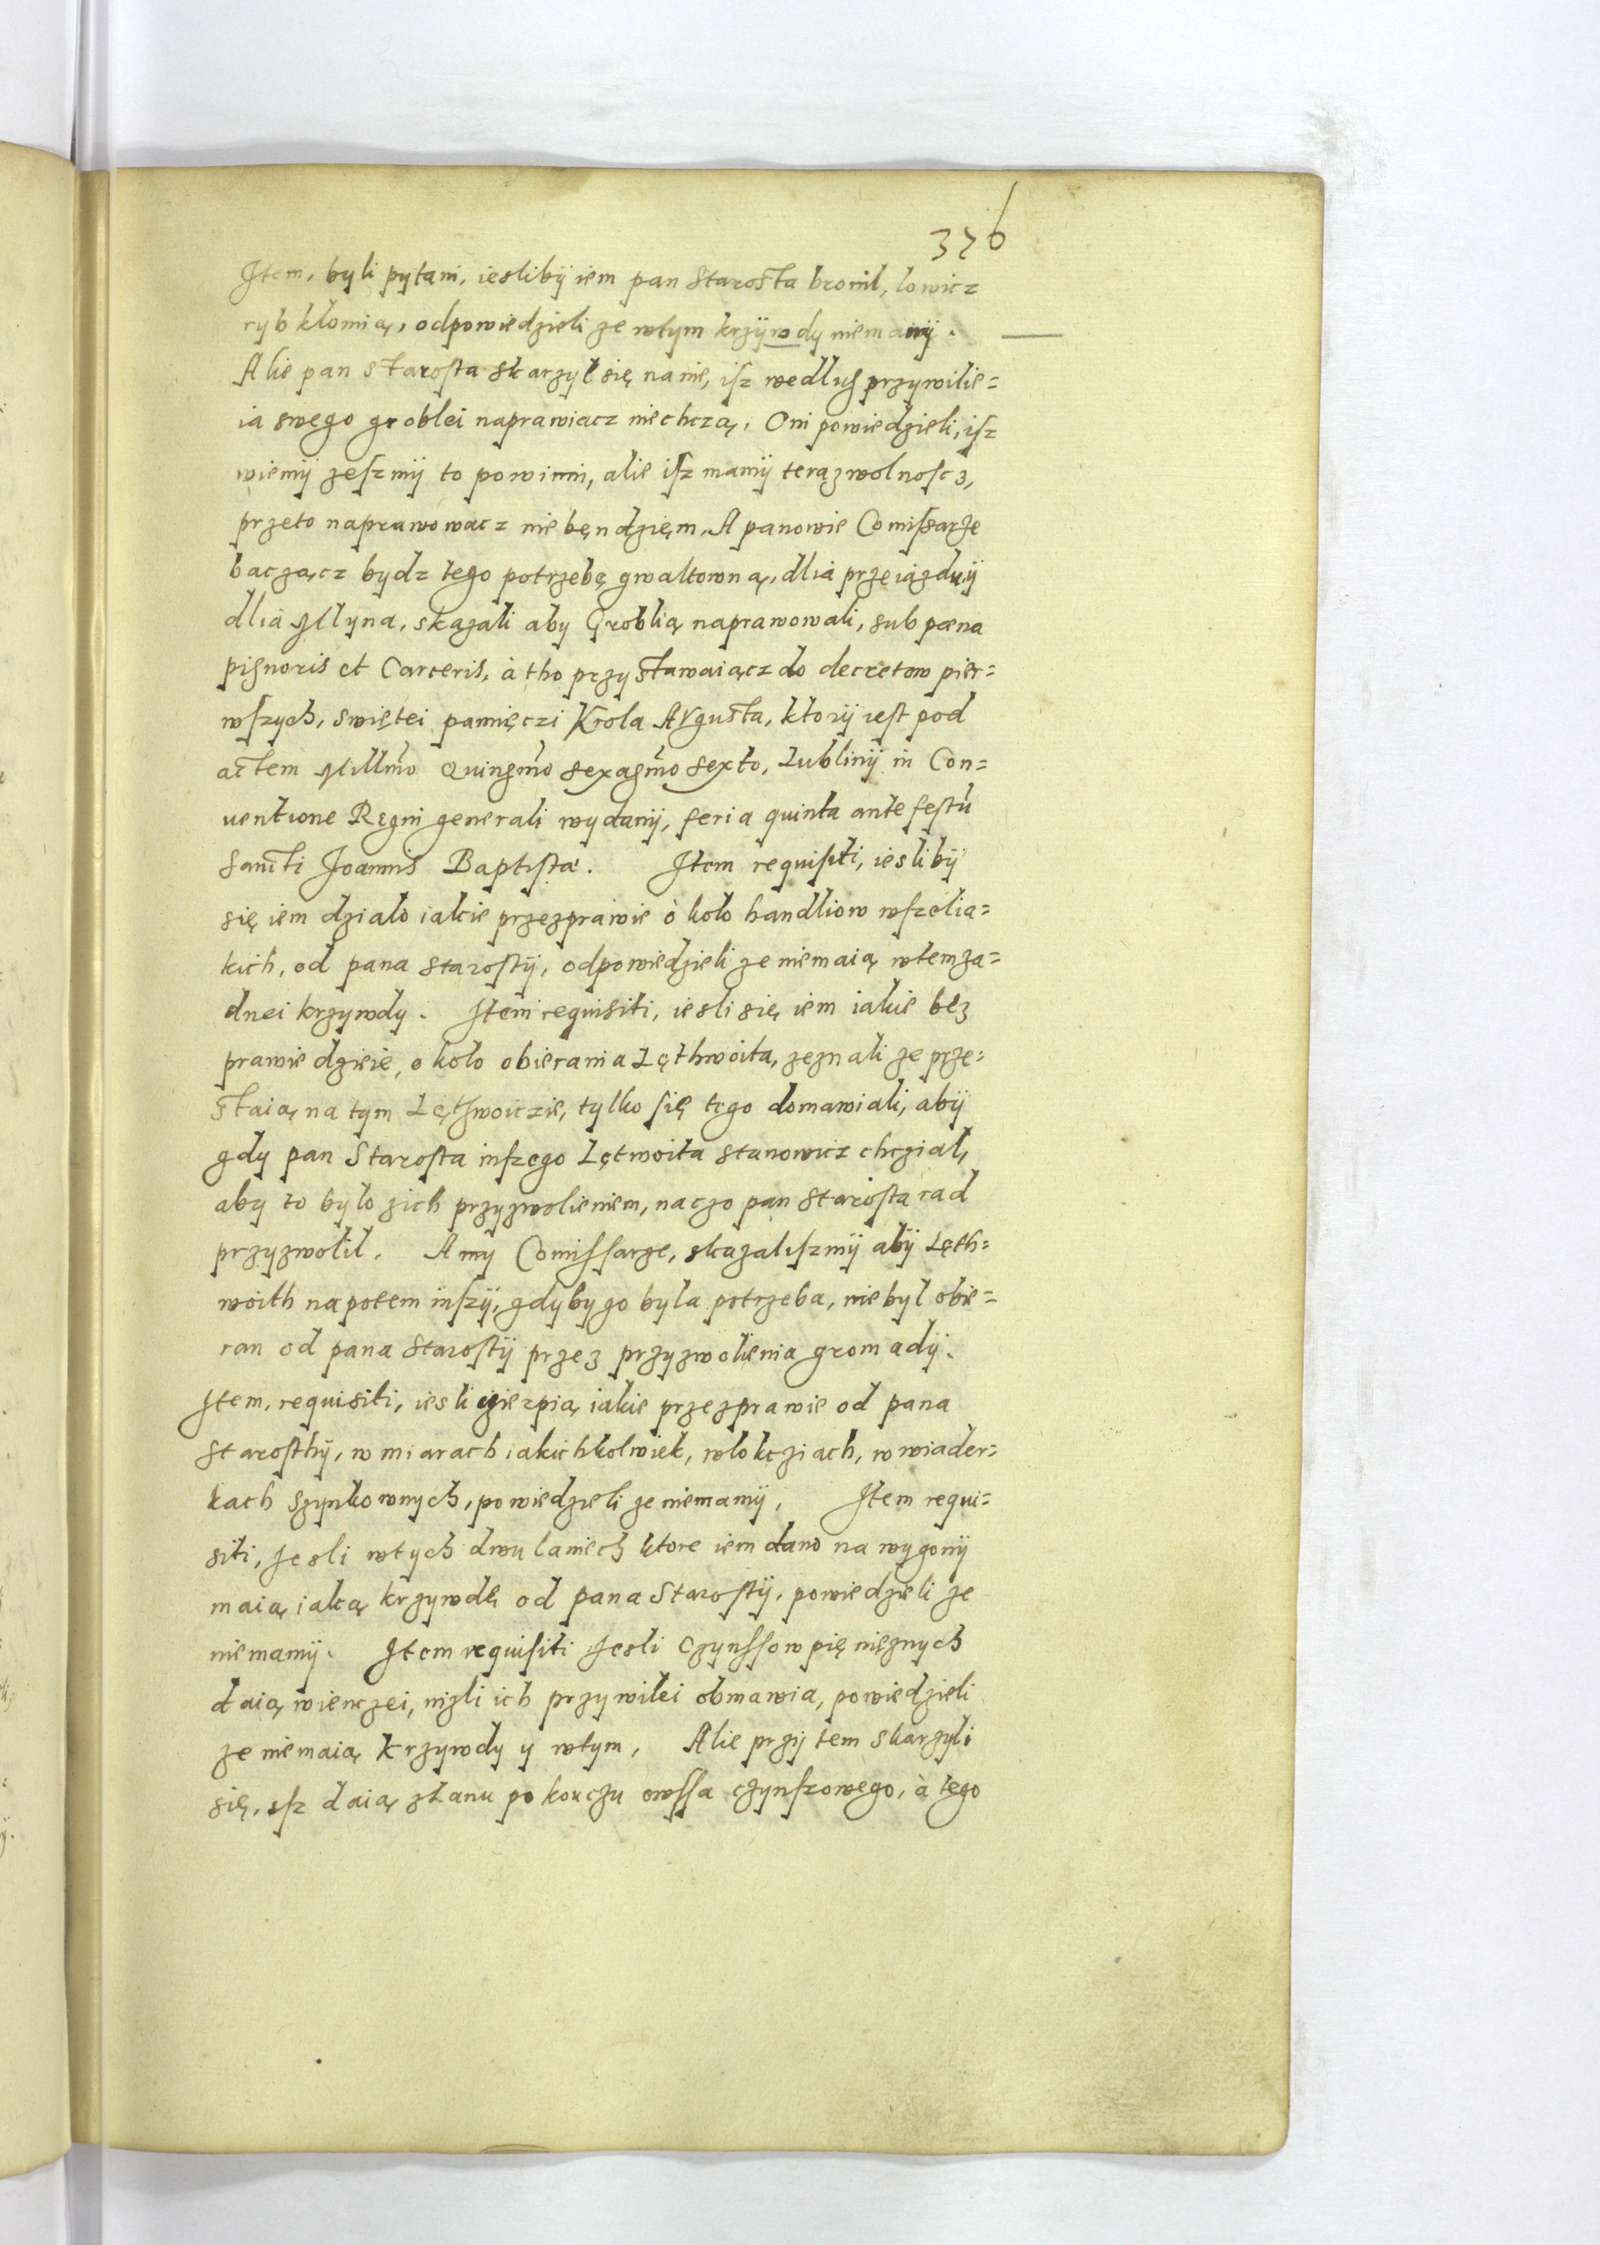 376
Item, byli pytani, ieslibÿ iem pan Starosta bronil, lowicz
ryb klomią, odpowiedzieli ze wtym krzÿwdy niemamÿ.
Alie pan Starosta skarzyl się na nie, isz wedlug przywilie=
ia swego groblei naprawiacz niechczą, Oni powiedzieli, isz
wiemÿ zesz mÿ to powinni, alie isz mamÿ teraz wolnoscz,
przeto naprawowacz nie będziem, A panowie Comissarze
baczącz bydz tego potrzebę gwaltowną, dlia przeiazdu, ÿ
dlia Mlyna, skazali aby Groblią naprawowali, sub pœna
pignoris et Carceris, à tho przystawaiącz do decretow pier=
wszych, swiętei pamięczi Krola Augusta, ktorÿ iest pod
actem Millmo Quingmo sexagmo sexto, Lublinÿ in Con=
uentione Regni generali wydanÿ, feria quinta ante festu
Sancti Joannis Baptistæ. Item requisiti, ieslibÿ
się iem dzialo iakie przezprawie òkolo handliow wszelia=
kich, od pana Starostÿ, odpowiedzieli ze niemaią wtem za=
dnei krzywdy. Item requisiti, iesli się iem iakie bez
prawie dzieie, okolo obierania Lęthwoita, zeznali ze prze=
staią na tym Lęthwoiczie, tylko się tego domawiali, abÿ
gdy pan Starosta inszego Lętwoita stanowicz chczial,
aby to bylo zich przyzwolieniem, naczo pan Starosta rad
przyzwolil. A my Comissarze, skazaliszmÿ abÿ Lęth=
woith napotem inszÿ, gdyby go byla potrzeba, nie byl obie=
ran od pana Starostÿ przez przyzwolienia gromadÿ.
Item, requisiti, iesli czierpią iakie przezprawie od pana
Starosthÿ, w miarach iakichkolwiek, wlokcziach, w wiader=
kach szynkownych, powiedzieli ze niemamÿ, Item requi=
siti, Jesli wtych dwu laniech ktore iem dano na wygonÿ
maią iaką krzywdę od pana Starostÿ, powiedzieli ze
niemamÿ. Item requisiti Jesli Czynssow pięnięznych
daią wienczei, nizli ich przywilei obmawia, powiedzieli
ze niemaią krzywdy y wtym, Alie przÿ tem skarzyli
się, isz daią zlanu po korczu owssa czynszowego, à tego